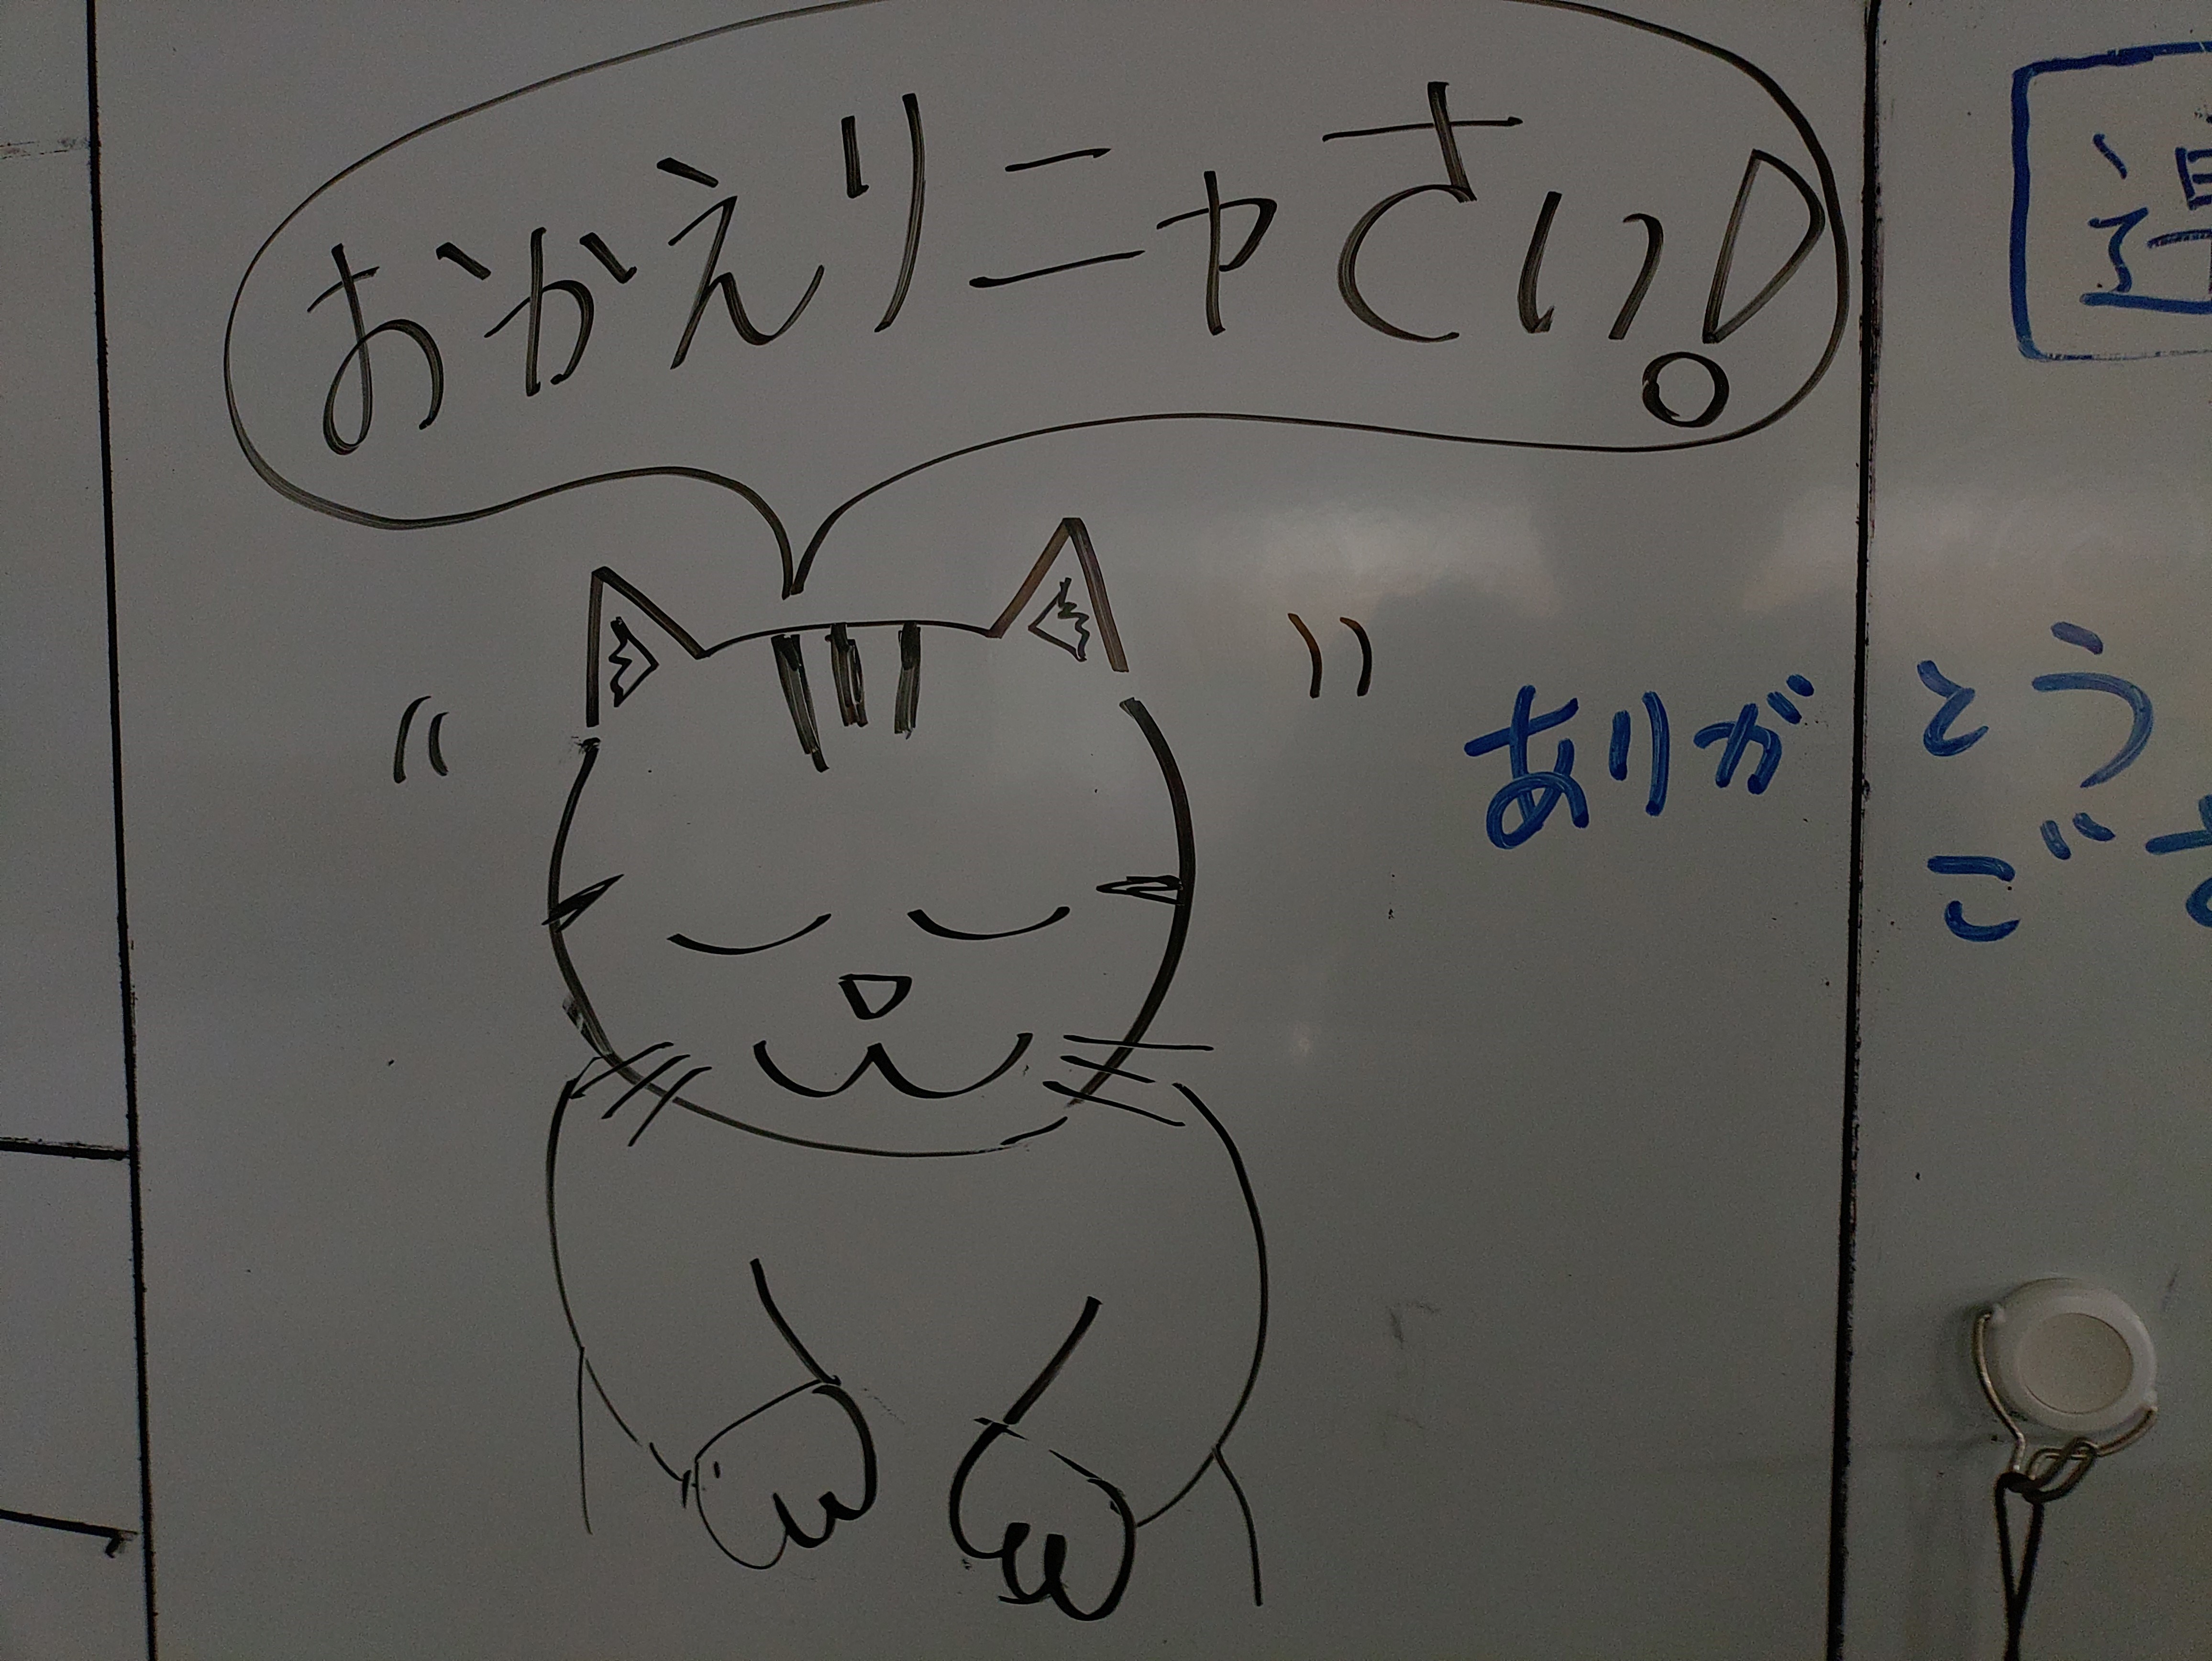 おかえりニャさい!
ありがとう
ござ